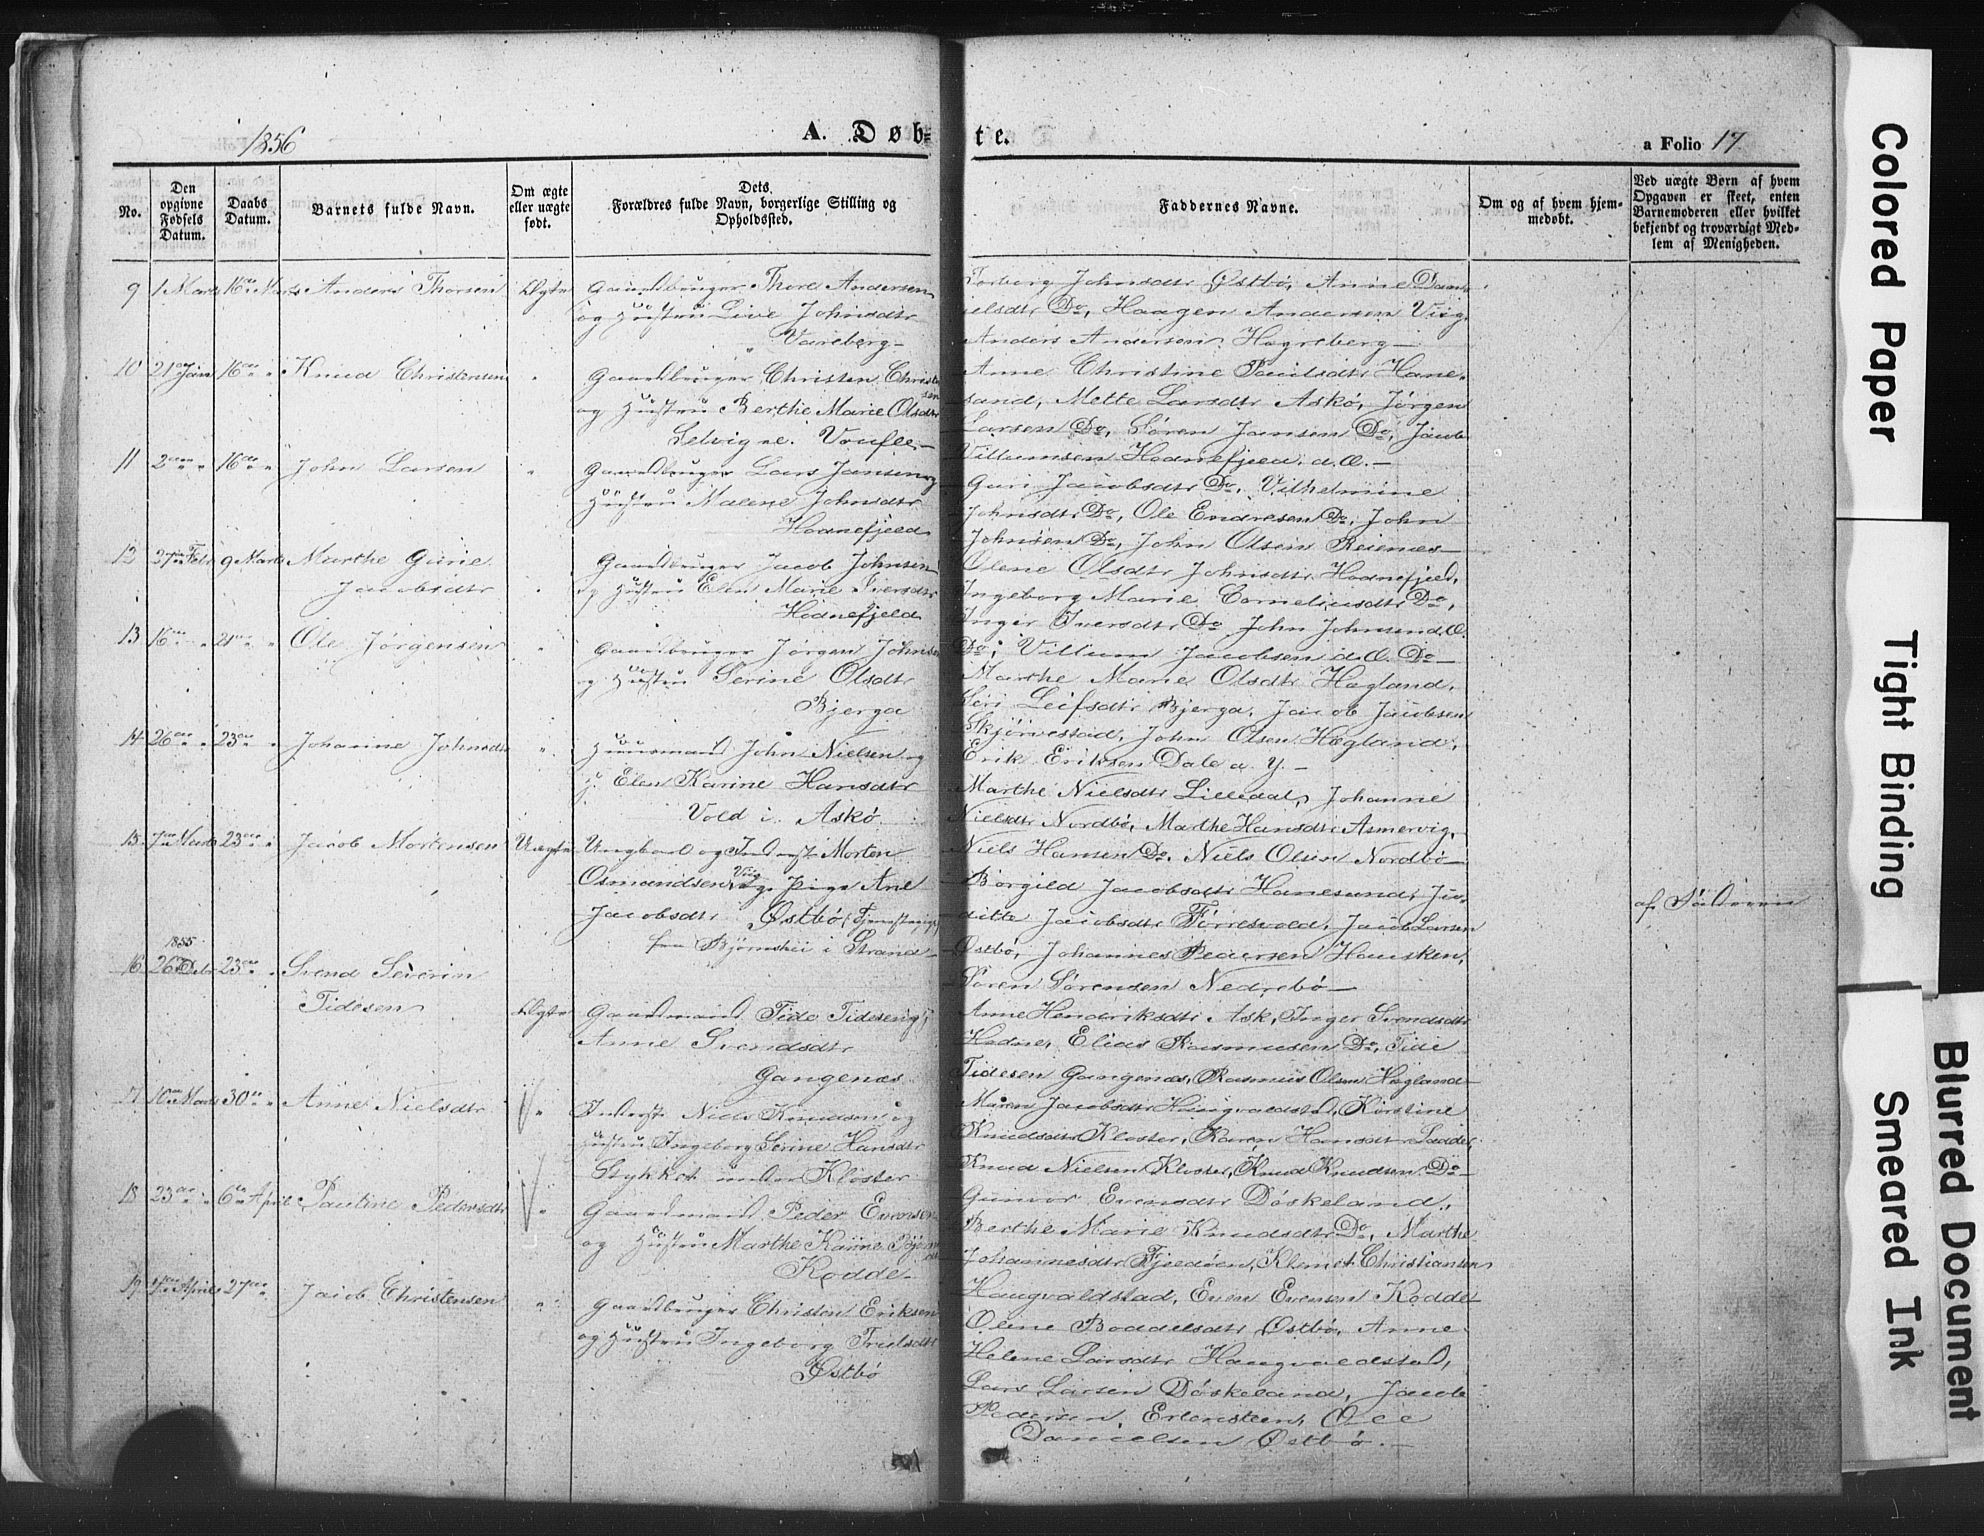 1856
A. Døb-
te.
a Folio 17
No.
Den opgivne Fødsels Datum.
Daabs Datum.
Barnets fulde Navn.
Om ægte eller uægte født.
Dets Forældres fulde Navn, borgerlige Stilling og Opholdssted.
Faddernes Navne.
Om og af hvem hjemmedøbt.
Ved uægte Børn af hvem Opgaven er skeet, enten Barnemoderen eller hvilket bekjendt og troværdigt Medlem af Menigheden.
9 1 Marts 16de Marts Anders Thorsen Ægte Gaardbruger Thore Andersen
og Hustru Live Johnsdtr
Vareberg
Torborg Johnsdtr Østbø, Anne Dani-
elsdtr Do, Haagen Andersen Viig,
Anders Andersen Hagreberg
10 21de Jan 16de " Knud Christensen " Gaardbruger Christen Christensen
og Hustru Berthe Marie Olsdtr
Selvig
Anne Christine Paulsdtr Hane-
sund, Mette Larsdtr Askø, Jørgen
Larsen Do, Søren Jansen Do, Jacob
Villumsen Hodnefjeld d.Æ.
11 2den " 16de " John Larsen " Gaardbruger Lars Jansen og
Hustru Malene Johnsdtr
Hodnefjeld
Guri Jacobsdtr Do, Vilhelmine
Johnsdtr Do, Ole Endresen Do, John
Johnsen Do, John Olsen Reienæs
12 27de Febr 9 Marts Marthe Gurie
Jacobsdtr " Gaardbruger Jacob Johnsen
og Hustru Elen Marie Iversdtr
Hodnefjeld
Olene Olsdtr Johnsdtr Hodnefjeld,
Ingeborg Marie Corneliusdtr Do,
Inger Iversdtr Do, John Johnsen d.Æ.
Do, Villum Jacobsen d.Æ. Do
13 16de " 21de " Ole Jørgensen " Gaardbruger Jørgen Johnsen
og Hustru Serine Olsdtr
Bjerga
Marthe Marie Olsdtr Hegland,
Siri Leifsdtr Bjerga, Jacob Jacobsen
Skjørvestad, John Olsen Hegland,
Erik Eriksen Dale a. Y.
14 26de " 23de " Johanne Johnsdtr " Huusmand John Nielsen og
H. Elen Karine Hansdtr
Vold i Askø
Marthe Nielsdtr Lilledal, Johanne
Nielsdtr Nordbø, Marthe Hansdtr Asmervig,
Niels Hansen Do, Niels Olsen Nordbø
15 7de Marts 23de " Jacob Mortensen Uægte Ungkarl og Inderst Morten
Osmundsen Viig og Pige Ane
Jacobsdtr Østbø (Tjenestepige
fra Bjørnshei i Strand
Borgild Jacobsdtr Hanesund, Ju-
ditte Jacobsdtr Førresvold, Jacob Larsen
Østbø, Johannes Pedersen Hausken,
Søren Sørensen Nedrebø
af Faderen
1855
16 26 Debr 23de " Svend Severin
Tidesen Ægte Gaardmand Tide Tidesen og H.
Anne Svendsdtr
Gangenæs
Anne Henriksdtr Ask, Inger Svendsdtr
Hodne, Elias Rasmusen Do, Tide
Tidesen Gangenæs, Rasmus Olsen Hegland
17 10de Marts 30de " Anne Nielsdtr " Inderst Niels Knudsen og
Hustru Ingeborg Serine Hansdtr
Stykket under Kloster
Maren Jacobsdtr Haugvaldstad, Kirstine
Knudsdtr Kloster, Karen Hansdtr
Knud Nielsen Kloster, Knud Knudsen Do
18 23de " 6te April Pauline Pedersdtr " Gaardmand Peder Evensen
og Hustru Marthe Karine
Kodde
Gunvor Evensdtr Døskeland,
Berthe Marie Knudsdtr Do, Marthe
Johannesdtr Fjeldøen, Klemet Christiansen
Haugvaldstad, Even Evensen Kodde
19 4de April 27de Jacob Christensen " Gaardbruger Christen Eriksen
og Hustru Ingeborg
Østbø
Oline Boddelsdtr Østbø, Anne
Helene Larsdtr Haugvaldstad,
Lars Larsen Døskeland, Jacob
Pedersen Erlensteen, Ole
Danielsen Østbø
Colored Paper
Tight Binding
Blurred Document
Smeared Ink